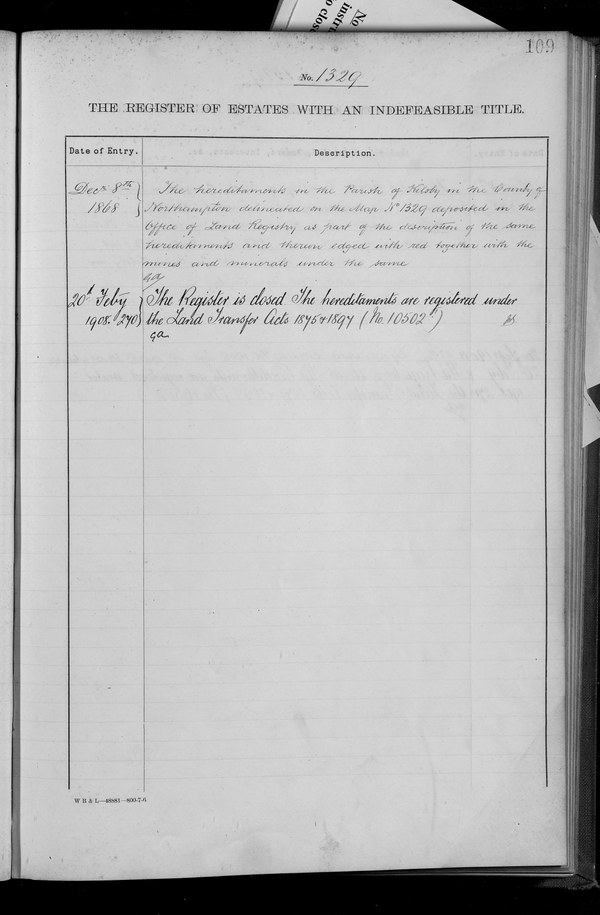 No
instru
o close
109
No. 1329
THE REGISTER OF ESTATES WITH AN INDEFEASIBLE TITLE.
Date of Entry.
Description.
Decr 8th
1868
The hereditaments in the Parish of Kilsby in the County of
Northampton delineated on the Map No 1329 deposited in the
Office of Land Registry as part of the description of the same
hereditaments and thereon edged with red together with the
mines and minerals under the same
ga
20th Feby
1908. 270
The Register is closed The hereditaments are registered under
the Land Transfer Acts 1875 & 1897 (No. 10502)
ga
W H & L—48881—800-7-6